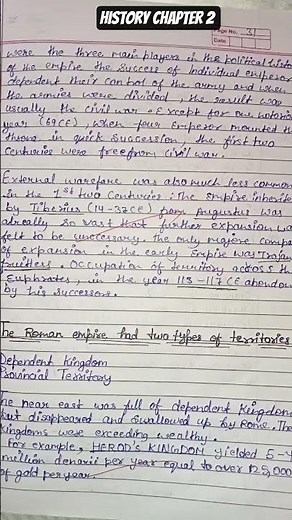 HISTORY CHAPTER 2
Page No. 31
Date
were the three main players in the political histo
of the empire the success of individual emperor
dependent their control of the army and when
the armies were divided, the result was
usually the civil war. Except for one notorio
year (69CE), when four Emperor mounted th
throne in quick succession, the first two
centuries were free from civil war.
External warfare was also much less common
in the 1st two centuries; The empire inherite
by Tiberius (14-37CE) from Augustus was
already so vast that further expansion wa
felt to be uneccessary. The only majore compa
of expansion in the early Empire was Trajan
fruitless. Occupation of territory across th
Euphrates, in the year 113-117 CE abandon
by his successors.
The Roman empire had two types of territories
Dependent kingdom
Provincial Territory
The near east was full of dependent kingdom
but disappeared and swallowed up by Rome. The
kingdoms were exceeding wealthy.
For example, HEROD's KINGDOM yielded 5-4
million denarii per year equal to over 125,000
of gold per year.